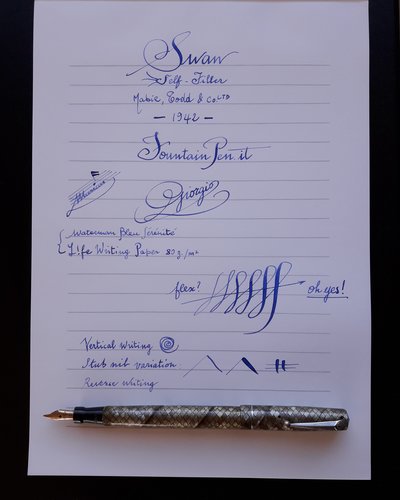 Swan
Self-Filler
Mabie, Todd & Co. LTD
— 1942 —
FountainPen.it
Giorgio
Waterman Bleu Sérénité
Life Writing Paper 80 g./m²
flex? oh yes!
Vertical writing
Stub nib variation
Reverse Writing